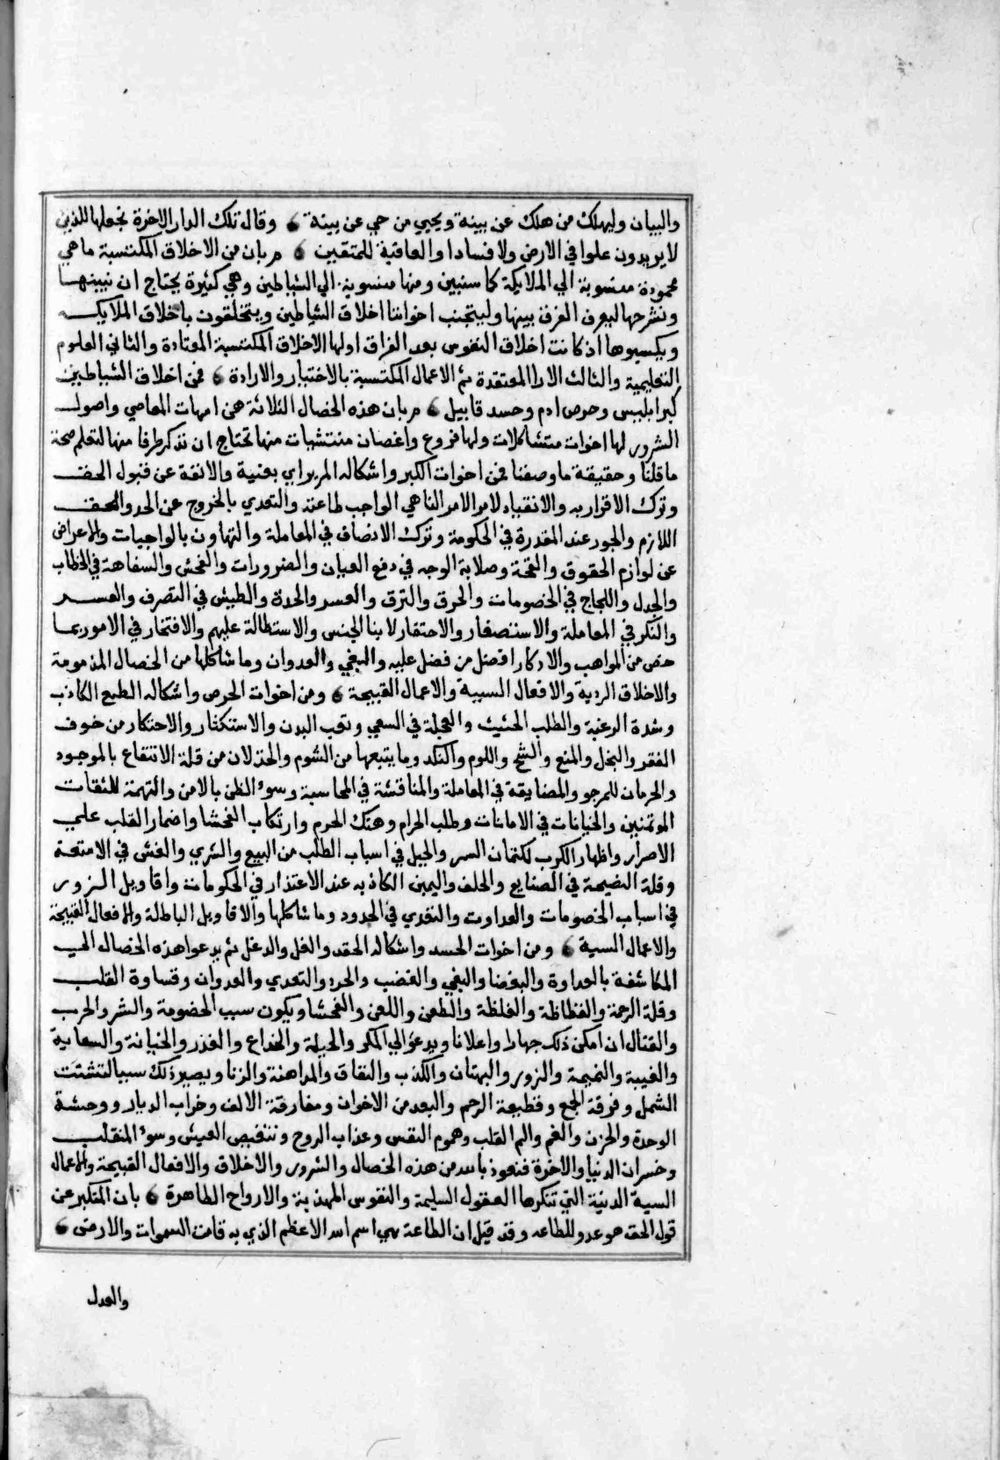 والبيان وليهلك من هلك عن بينة ويحيي من حي عن بينة ٥ وقال تلك الدار الاخرة نجعلها للذين
لا يريدون علوا في الارض ولا فسادا والعاقبة للمتقين ٥ مربان من الاخلاق المكتسبة ما هي
محمودة منسوبة الي الملايكة كما سنبين ومنها منسوبة الي الشياطين وهي كثيرة يحتاج ان نبينها
ونشرحها ليعرف الفرق بينها وليتجنب اخواننا اخلاق الشياطين ويتخلقون باخلاق الملايكه
ويكسبوها اذ كانت اخلاق النفوس بعد الفراق اولها الاخلاق المكتسبة المعتادة والثاني العلوم
التعليمية والثالث الارا المعتقدة ثم الاعمال المكتسبة بالاختيار والارادة ٥ فمن اخلاق الشياطين
كبر ابليس وحرص ادم وحسد قابيل ٥ مربان هذه الخصال الثلاثة هن امهات المعاصي واصول
الشرور لها اخوات متشاكلات ولها فروع واغصان منتشبات منها تحتاج ان نذكر طرفا منها لتعلم صحة
ما قلنا وحقيقة ما وصفنا فمن اخوات الكبر واشكاله المربوابي بغنية والانفة عن قبول الحق
وترك الاقرار به والانقياد لامر الامر الناهي الواجب طاعته والتعدي بالخروج عن الحد والحق
اللازم والجور عند المقدرة في الحكومة وترك الانصاف في المعاملة والتهاون بالواجبات والاعراض
عن لوازم الحقوق والقحة وصلابة الوجه في دفع العيان والضرورات والفحش والسفاهة في الخطاب
والجدل واللجاج في الخصومات والخرق والترق والعسر والحدة والطيش في التصرف والعسر
والنكر في المعاملة والاستصغار والاحتقار لابنا الجنس والاستطالة عليهم والافتخار في الامور بما
خص من المواهب والادكار افضل من فضل عليه والبغي والعدوان وما شاكلها من الخصال المذمومة
والاخلاق الردية والافعال السيية والاعمال القبيحة ٥ ومن اخوات الحرص واشكاله الطمع الكاذب
وشدة الرغبة والطلب الحثيث والعجلة في السعي وتعب البدن والاستكثار والاحتكار من خوف
الفقر والبخل والمنع والشح واللوم والنكد وما يتبعها من الشوم والخذلان من قلة الانتفاع بالموجود
والحرمان للمرجو والمضايقة في المعاملة والمناقشة في المحاسبة وسوء الظن بالامن والتهمة للثقات
الموتمنين والخيانات في الامانات وطلب الحرام وهتك الحرم وارتكاب الفحشا واضمار القلب علي
الاصرار واظهار الكرب لكتمان السر والحيل في اسباب الطلب من البيع والشري والغش في الامتعة
وقلة النصيحة في الصنايع والحلف واليمين الكاذبه عند الاعتذار في الحكومات واقاويل الزور
في اسباب الخصومات والعداوت والتعدي في الحدود وما شاكلها والاقاويل الباطلة والافعال القبيحة
والاعمال السية ٥ ومن اخوات الحسد واشكاله الحقد والغل والدغل ثم يدعوا هذه الخصال الي
المكاشفة بالعداوة والبغضا والبغي والغضب والحرد والتعدي والعدوان وقساوة القلب
وقلة الرحمة والفظاظة والغلظة والطعن واللعن والفحشا ويكون سبب الخصومة والشر والحرب
والقتال ان امكن ذلك جهارا واعلانا ويدعو الي المكر والحيلة والخداع والغدر والخيانة والسعاية
والغيبة والنميمة والزور والبهتان والكذب والنفاق والمداهنة والزنا ويصير ذلك سببا لتشتت
الشمل وفرقة الجمع وقطيعة الرحم والبعد من الاخوان ومفارقة الالف وخراب الديار ووحشة
الوحدة والحزن والغم والم القلب وهموم النفس وعذاب الروح وتنغيص العيش وسوء المنقلب
وخسران الدنيا والاخرة فنعوذ بالله من هذه الخصال والشرور والاخلاق والافعال القبيحة والاعمال
السية الدنية التي تنكرها العقول السليمة والنفوس المهذبة والارواح الطاهرة ٥ بان المتكبر عن
قول الحق هو عدو للطاعه وقد قيل ان الطاعة هي اسم الله الاعظم الذي به قامت السموات والارض ٥
والعدل